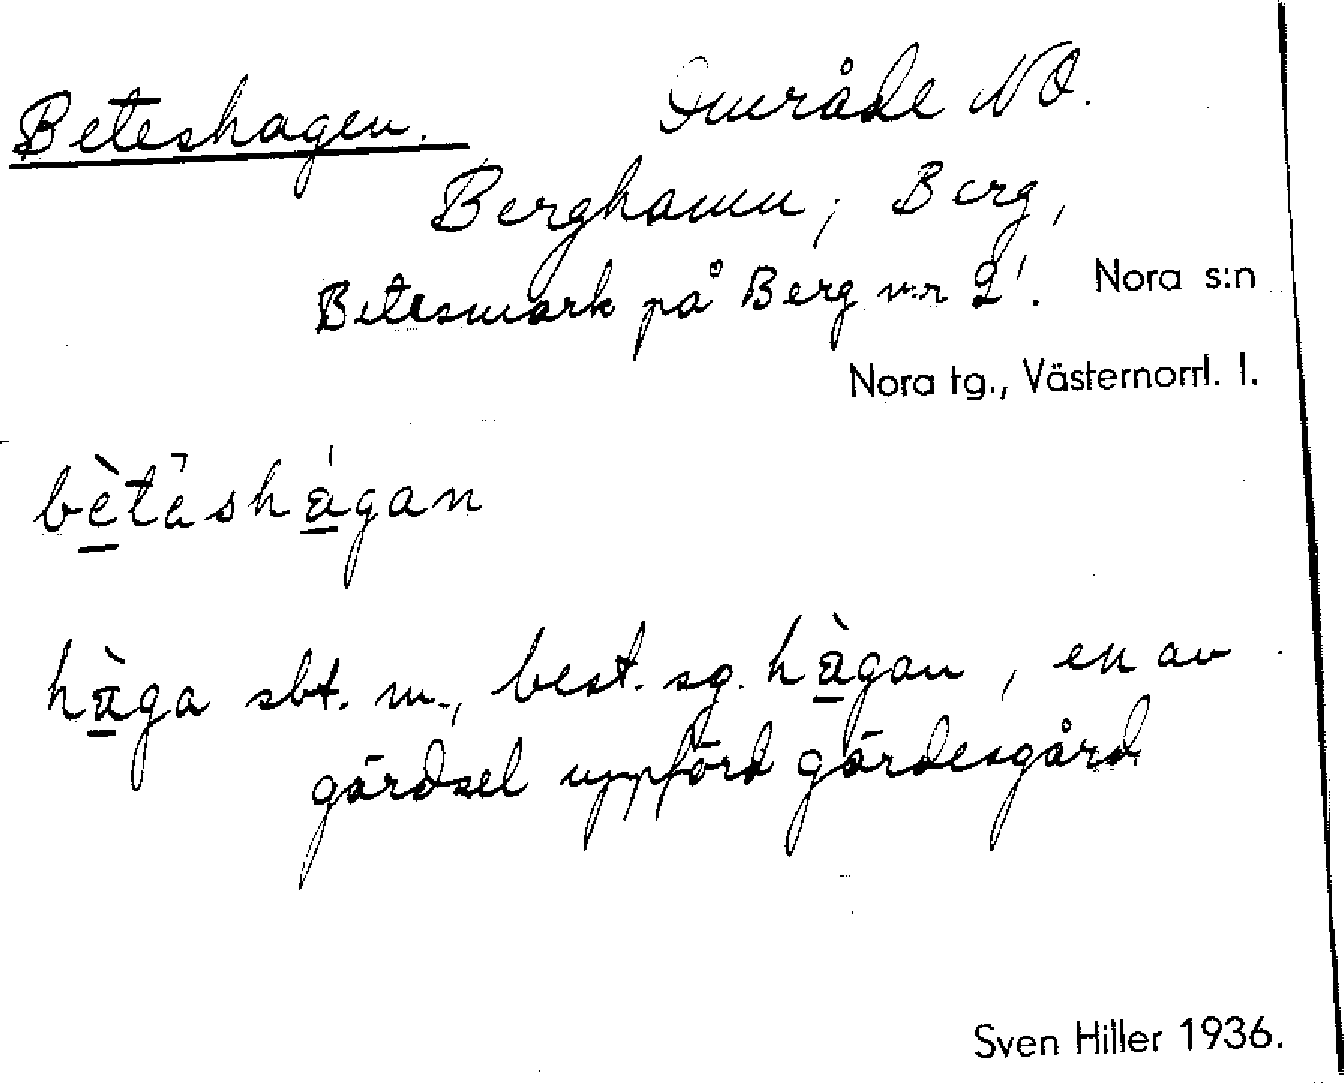 Beteshagen. Område NO.
Berghamn, Berg,
Betesmark på Berg n:r 2¹. Nora s:n
Nora tg., Västernorrl. l.
bètäshágan
hàga sbt. m., best. sg. hàgan, en av
gärdsel uppförd gärdesgård
Sven Hiller 1936.